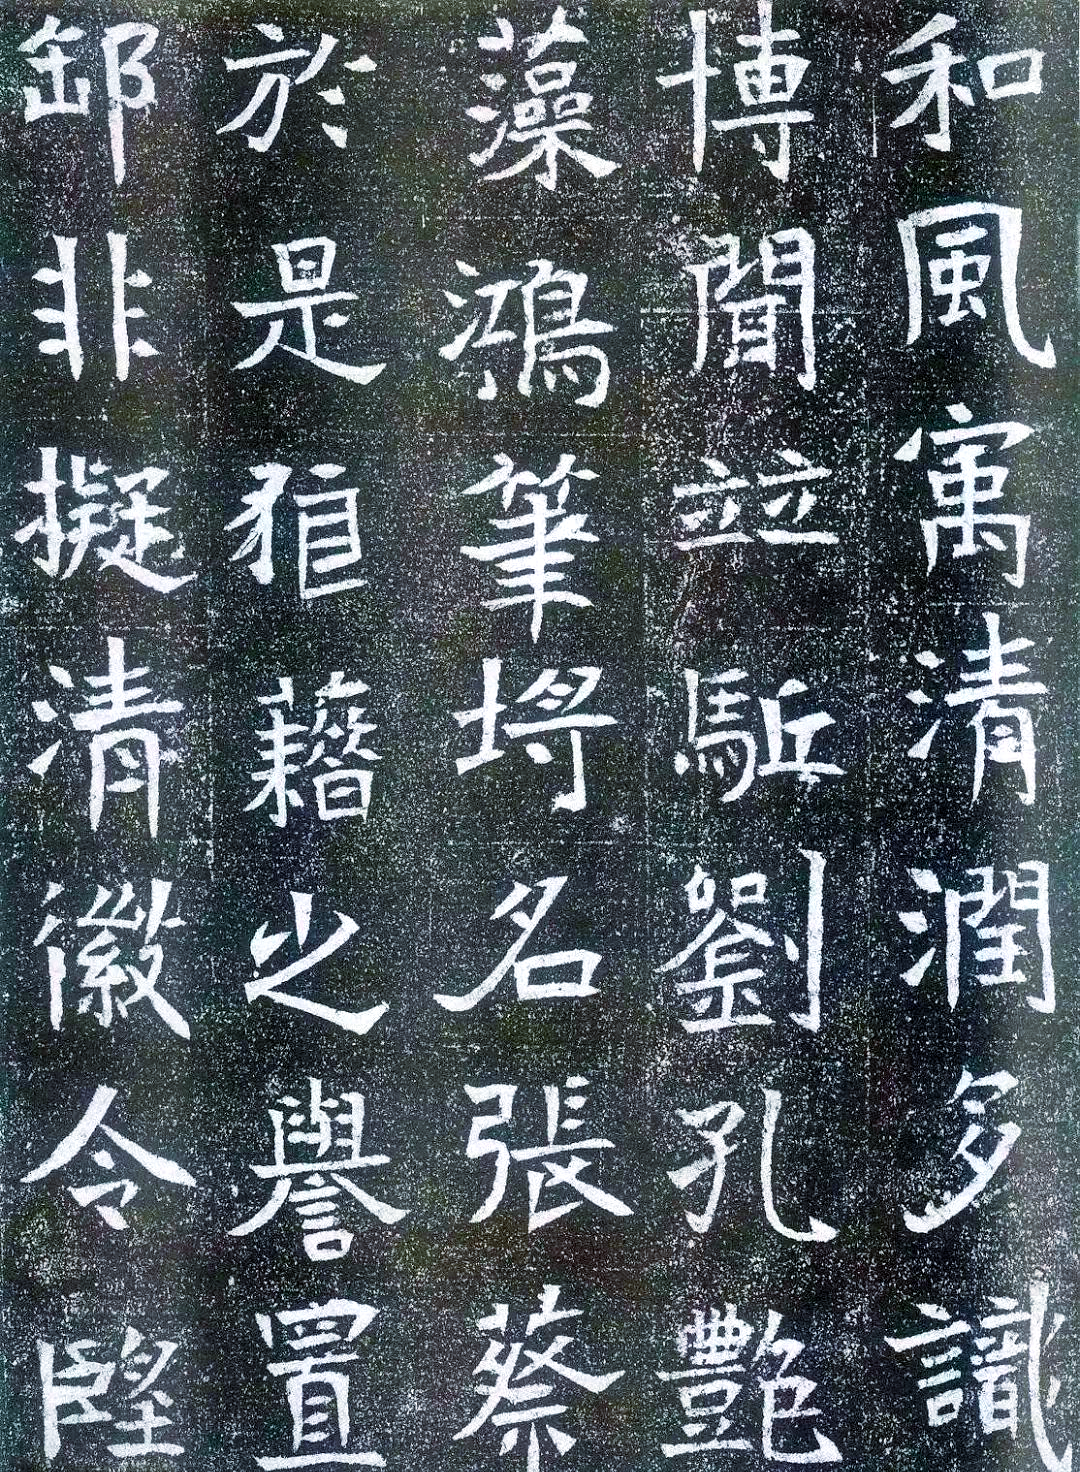 和風寓清潤多識
博聞並駈劉孔艷
藻鴻筆埒名張蔡
於是藉之譽置
郵非擬清徽令